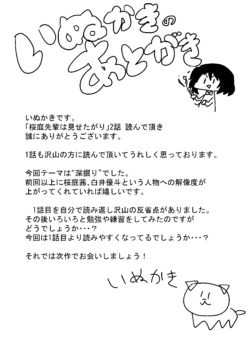 いぬかきの
あとがき
いぬかきです。
「桜庭先輩は見せたがり」2話 読んで頂き
誠にありがとうございます。
1話も沢山の方に読んで頂いてうれしく思っております。
今回テーマは“深掘り”でした。
前回以上に桜庭茜、白井優斗という人物への解像度が
上がってくれていれば嬉しいです。
1話目を自分で読み返し沢山の反省点がありました。
その後いろいろと勉強や練習をしてみたのですが
どうでしょうか・・・?
今回は1話目より読みやすくなってるでしょうか・・・?
それでは次作でお会いしましょう!
いぬかき